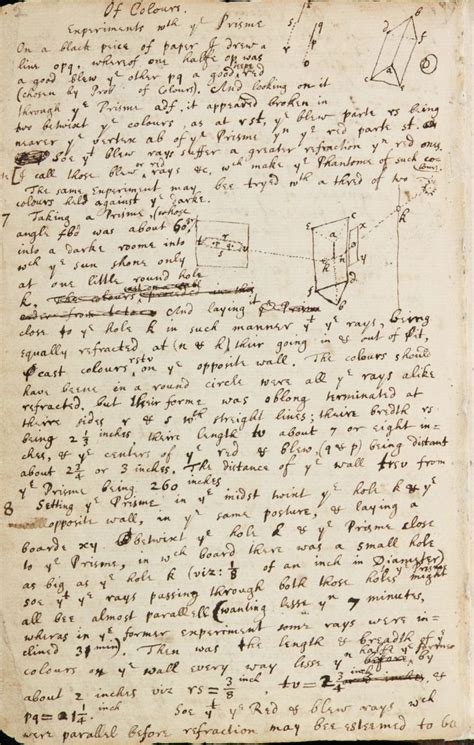 2
Of Colours.
Experiments wth ye Prisme
On a black peice of paper I drew a
line opq, whereof one halfe op was
a good blew ye other pq a good deepe red
(chosen by Prob of Colours). And looking on it
through ye Prisme adf, it appeared broken in
two betwixt ye colours, as at rst, ye blew parte rs being
nearer ye vertex ab of ye Prisme yn ye red parte st.
Soe yt blew rays suffer a greater refraction yn red ones.
n [I call those blew rays &c, wch make ye Phantome of such colours
The same Experiment may bee tryed wth a thred of two
colours held against ye darke.
7 Taking a Prisme, (whose
angle fbd was about 60gr)
into a darke roome into
wch ye sun shone only
at one little round hole
k, And laying it
close to ye hole k in such manner yt ye rays, being
equally refracted at (n & h) their going in & out of it,
cast colours rstv on ye opposite wall. The colours should
have beene in a round circle were all ye rays alike
refracted, but their forme was oblong terminated at
theire sides r & s wth streight lines; theire bredth rs
being 2 1/3 inches, theire length tv about 7 or eight in-
ches, & ye centers of ye red & blew, (q & p) being distant
about 2 3/4 or 3 inches. The distance of ye wall trsv from
ye Prisme being 260 inches
8 Setting ye Prisme in ye midst twixt ye hole k & ye
opposite wall, in ye same posture, & laying a
boarde xy betwixt ye hole k & ye Prisme close
to ye Prisme, in wch board there was a small hole
as big as ye hole k (viz: 1/8 of an inch in Diameter)
soe yt ye rays passing through both those holes to ye Prisme might
all bee almost parallell (wanting lesse yn 7 minutes,
wheras in ye former experiment some rays were in-
clined 31 min). Then was the length & breadth of ye
colours on ye wall every way lesse yn halfe ye former by
about 2 inches viz rs = 3/8 inch, tv = 2 3/4 inch, &
pq = 1 1/4 inch. Soe yt ye Red & blew rays wch
were parallel before refraction may bee esteemed to be